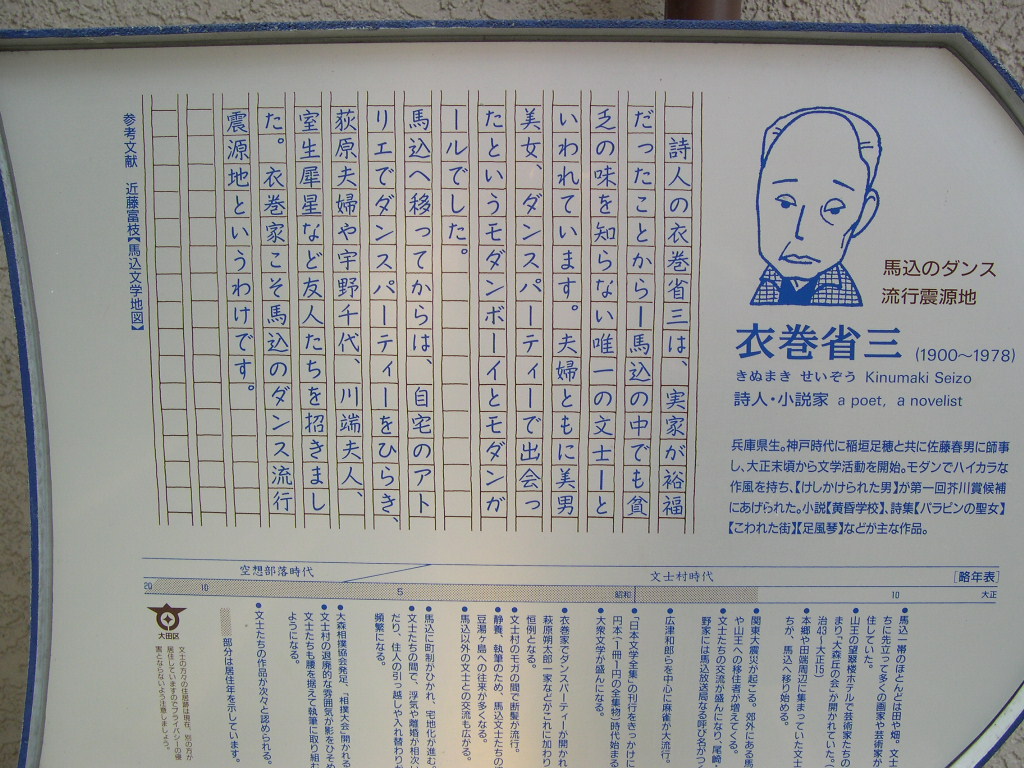 馬込のダンス
流行震源地
衣巻省三 (1900～1978)
きぬまき せいぞう Kinumaki Seizo
詩人・小説家 a poet, a novelist
兵庫県生。神戸時代に稲垣足穂と共に佐藤春男に師事
し、大正末頃から文学活動を開始。モダンでハイカラな
作風を持ち、【けしかけられた男】が第一回芥川賞候補
にあげられた。小説【黄昏学校】、詩集【パラピンの聖女】
【こわれた街】【足風琴】などが主な作品。
詩人の衣巻省三は、実家が裕福
だったことからー馬込の中でも貧
乏の味を知らない唯一の文士ーと
いわれています。夫婦ともに美男
美女、ダンスパーティーで出会っ
たというモダンボーイとモダンガ
ールでした。
馬込へ移ってからは、自宅のアト
リエでダンスパーティーをひらき、
萩原夫婦や宇野千代、川端夫人、
室生犀星など友人たちを招きまし
た。衣巻家こそ馬込のダンス流行
震源地というわけです。
参考文献 近藤富枝【馬込文学地図】
[略年表]
文士村時代
空想部落時代
大正
10
昭和
5
10
20
●馬込一帯のほとんどは田や畑。文士
ちに先立って多くの画家や芸術家が
住していた。
●山王の望翠楼ホテルで芸術家たちの
まり「大森丘の会」が開かれていた。
治43ー大正15)
●本郷や田端周辺に集まっていた文士
ちが、馬込へ移り始める。
●関東大震災が起こる。郊外にある馬
や山王への移住者が増えてくる。
●文士たちの交流が盛んになり、尾崎・
野家には馬込放送局なる呼び名がつ
●広津和郎らを中心に麻雀が大流行。
●「日本文学全集」の刊行をきっかけに
円本(一冊一円の全集物)時代始まる
●大衆文学が盛んになる。
●衣巻家でダンスパーティーが開かれ
萩原朔太郎一家などがこれに加わり
恒例となる。
●文士村のモガの間で断髪が流行。
●静養、執筆のため、馬込文士たちの
豆湯ヶ島への往来が多くなる。
●馬込以外の文士との交流も広がる。
●馬込に町制がひかれ、宅地化が進む。
●文士たちの間で、浮気や離婚が相次い
だり、住人の引っ越しや入れ替わりが
頻繁になる。
●大森相撲協会発足。「相撲大会」開かれる
●文士村の退廃的な雰囲気が影をひそめ
文士たちも腰を据えて執筆に取り組む
ようになる。
●文士たちの作品が次々と認められる。
部分は居住年を示しています。
大田区
文士の方々の住居跡は現在、別の方が
居住していますのでプライバシーの侵
害とならないよう注意しましょう。